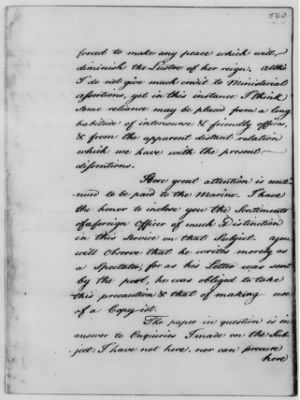 520
forced to make any peace which will
diminish the Lustre of her reign. Altho
I do not give much credit to Ministerial
Assertions, yet in this instance I think
some reliance may be placed from a long
habitude of intercourse & friendly offices,
& from the apparent distant relation
which we have with the present
dissentions.
Here great attention is conti-
nued to be paid to the Marine. I have
the honor to inclose you the Sentiments
of a foreign Officer of much Distinction
in this Service on that Subject. You
will observe that he writes merely as
a Spectator, for as his Letter was sent
by the post, he was obliged to take
this precaution & that of making use
of a Copyist.
The paper in question is in
answer to Enquiries I made on the Sub-
ject; I have not here, nor can procure
here